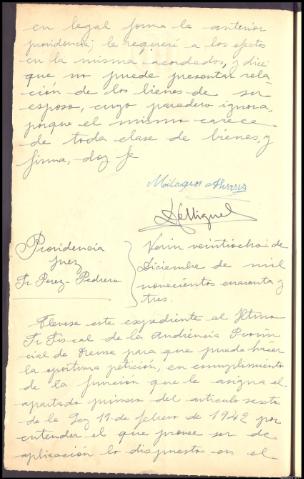 en legal forma la anterior
providencia; le requerí a los efectos
en la misma acordados, y dice
que no puede presentar rela-
ción de los bienes de su
esposo, cuyo paradero ignora,
porque el mismo carece
de toda clase de bienes, y
firma, doy fe
Milagros Alvarez
DeMiguel
Providencia
Juez
Sr. Perez-Pedrero
Verin veintiocho de
Diciembre de mil
novecientos cuarenta y
tres.
Elevese este expediente al Iltmo
Sr. Fiscal de la Audiencia Provin-
cial de Orense para que pueda hacer
la oportuna petición, en cumplimiento
de la función que le asigna el
apartado primero del articulo sexto
de la Ley 19 de febrero de 1942 por
entender el que provee ser de
aplicación lo dispuesto en el